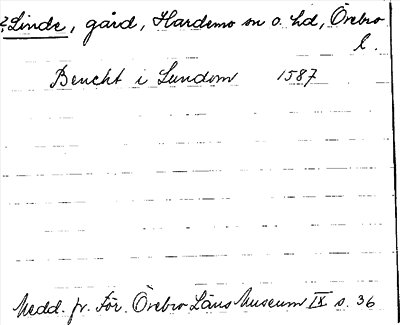 ? Linde, gård, Hardemo sn o. hd, Örebro
l.
Bencht i Lundom 1587
Medd. fr. För. Örebro Läns Museum IX s. 36